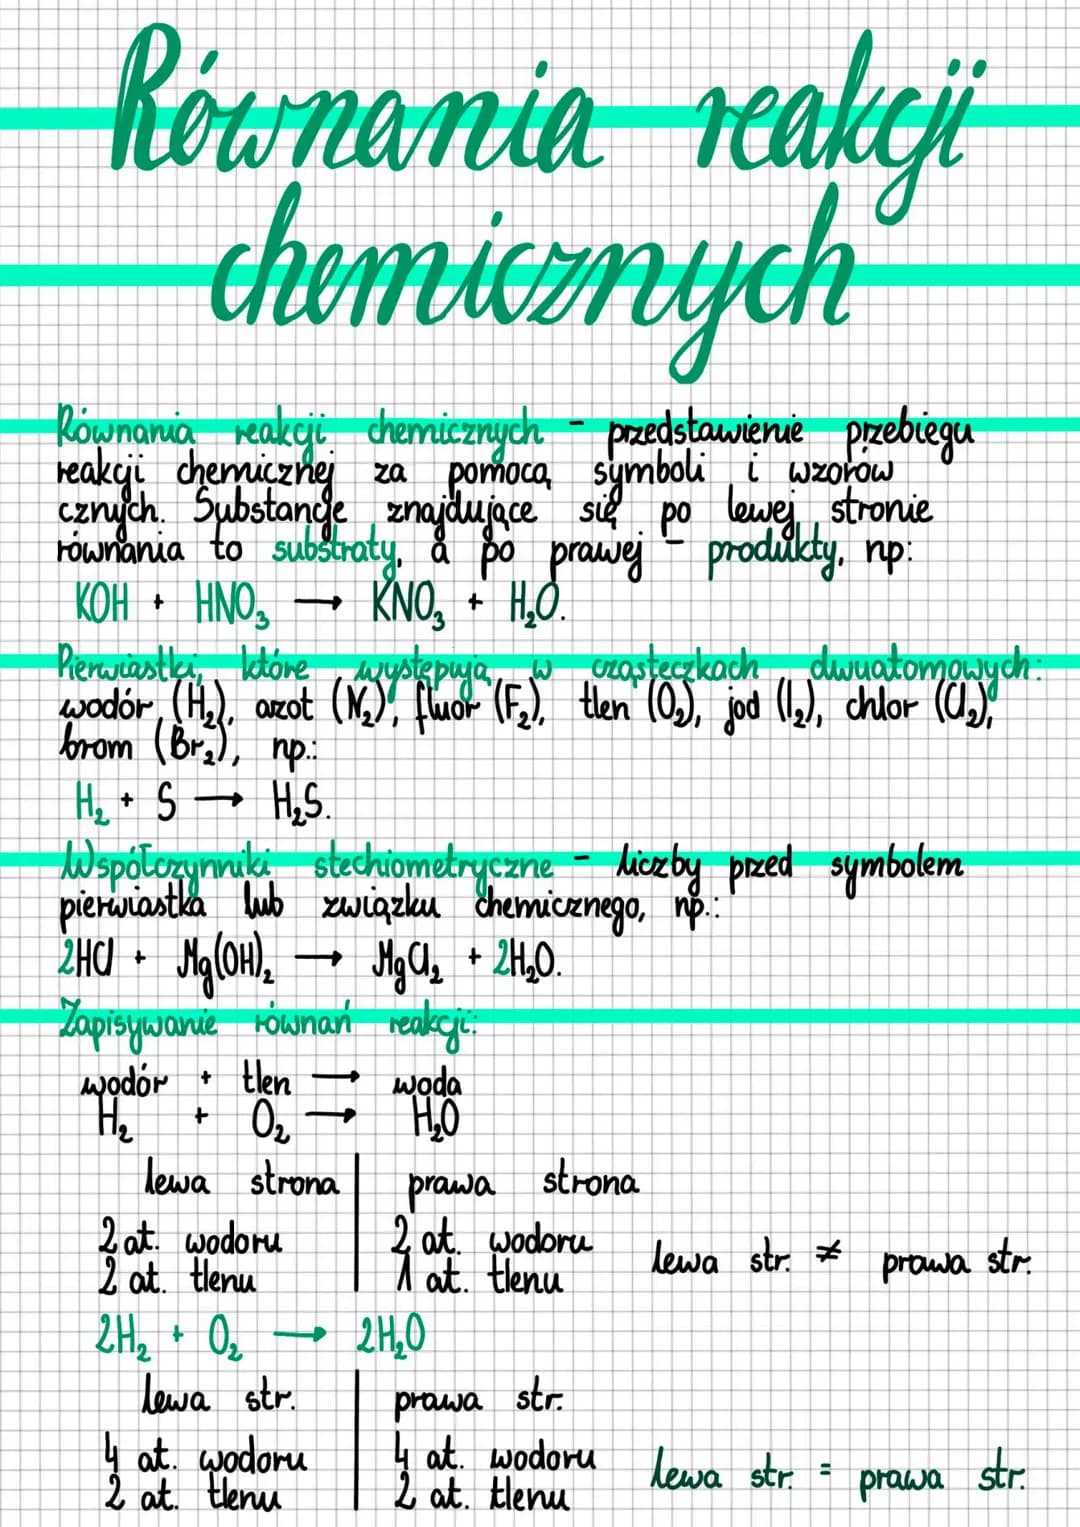 Równania reakcji
chemicznych
Równania reakcji chemicznych - przedstawienie przebiegu
reakcji chemicznej za pomocą symboli i wzorów
cznych. Substancje znajdujące się po lewej stronie
równania to substraty, a po prawej - produkty, np:
KOH + HNO₃ → KNO₃ + H₂O.
Pierwiastki, które występują w cząsteczkach dwuatomowych:
wodór (H₂), azot (N₂), fluor (F₂), tlen (O₂), jod (I₂), chlor (Cl₂),
brom (Br₂), np.:
H₂ + S → H₂S.
Współczynniki stechiometryczne - liczby przed symbolem
pierwiastka lub związku chemicznego, np.:
2HCl + Mg(OH)₂ → MgCl₂ + 2H₂O.
Zapisywanie równań reakcji:
wodór + tlen → woda
H₂ + O₂ → H₂O
lewa strona | prawa strona
2 at. wodoru | 2 at. wodoru
2 at. tlenu | 1 at. tlenu lewa str. ≠ prawa str.
2H₂ + O₂ → 2H₂O
lewa str. | prawa str.
4 at. wodoru | 4 at. wodoru
2 at. tlenu | 2 at. tlenu lewa str. = prawa str.